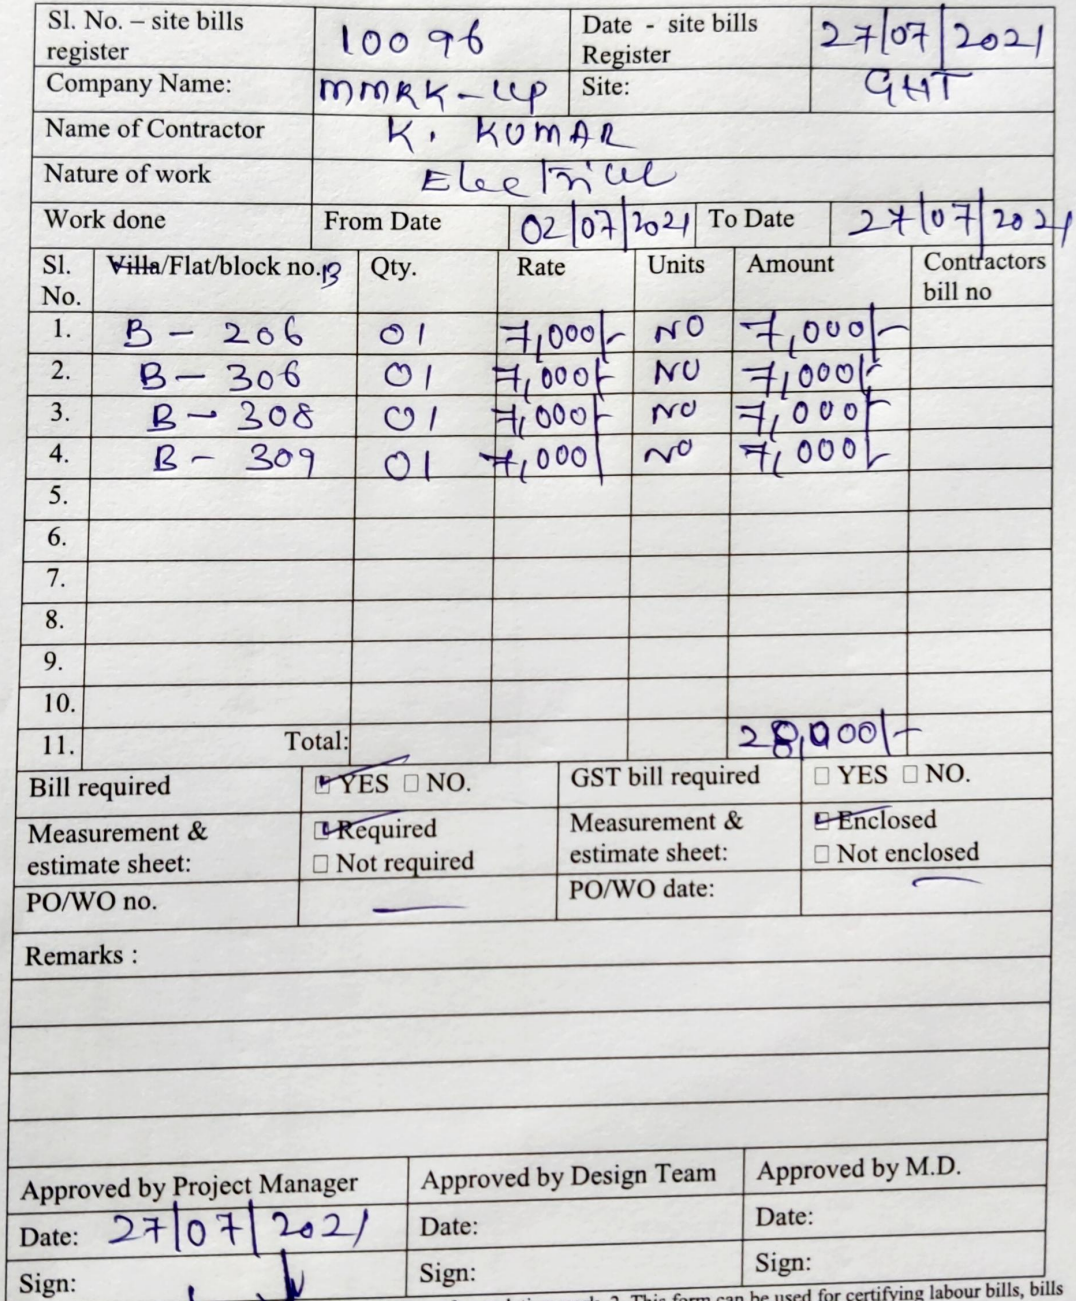 Sl. No. – site bills register 10096 Date - site bills Register 27/07/2021
Company Name: MMRK-LLP Site: GHT
Name of Contractor K. KUMAR
Nature of work Electrical
Work done From Date 02/07/2021 To Date 27/07/2021
Sl. No. Villa/Flat/block no. B Qty. Rate Units Amount Contractors bill no
1. B - 206 01 7,000/- NO 7,000/-
2. B - 306 01 7,000/- NO 7,000/-
3. B - 308 01 7,000/- NO 7,000/-
4. B - 309 01 7,000/ NO 7,000/-
5.
6.
7.
8.
9.
10.
11. Total: 28,000/-
Bill required ☑ YES ☐ NO. GST bill required ☐ YES ☐ NO.
Measurement & estimate sheet: ☑ Required ☐ Not required Measurement & estimate sheet: ☑ Enclosed ☐ Not enclosed
PO/WO no. — PO/WO date: —
Remarks :
Approved by Project Manager Approved by Design Team Approved by M.D.
Date: 27/07/2021 Date: Date:
Sign: Sign: Sign:
This form can be used for certifying labour bills, bills